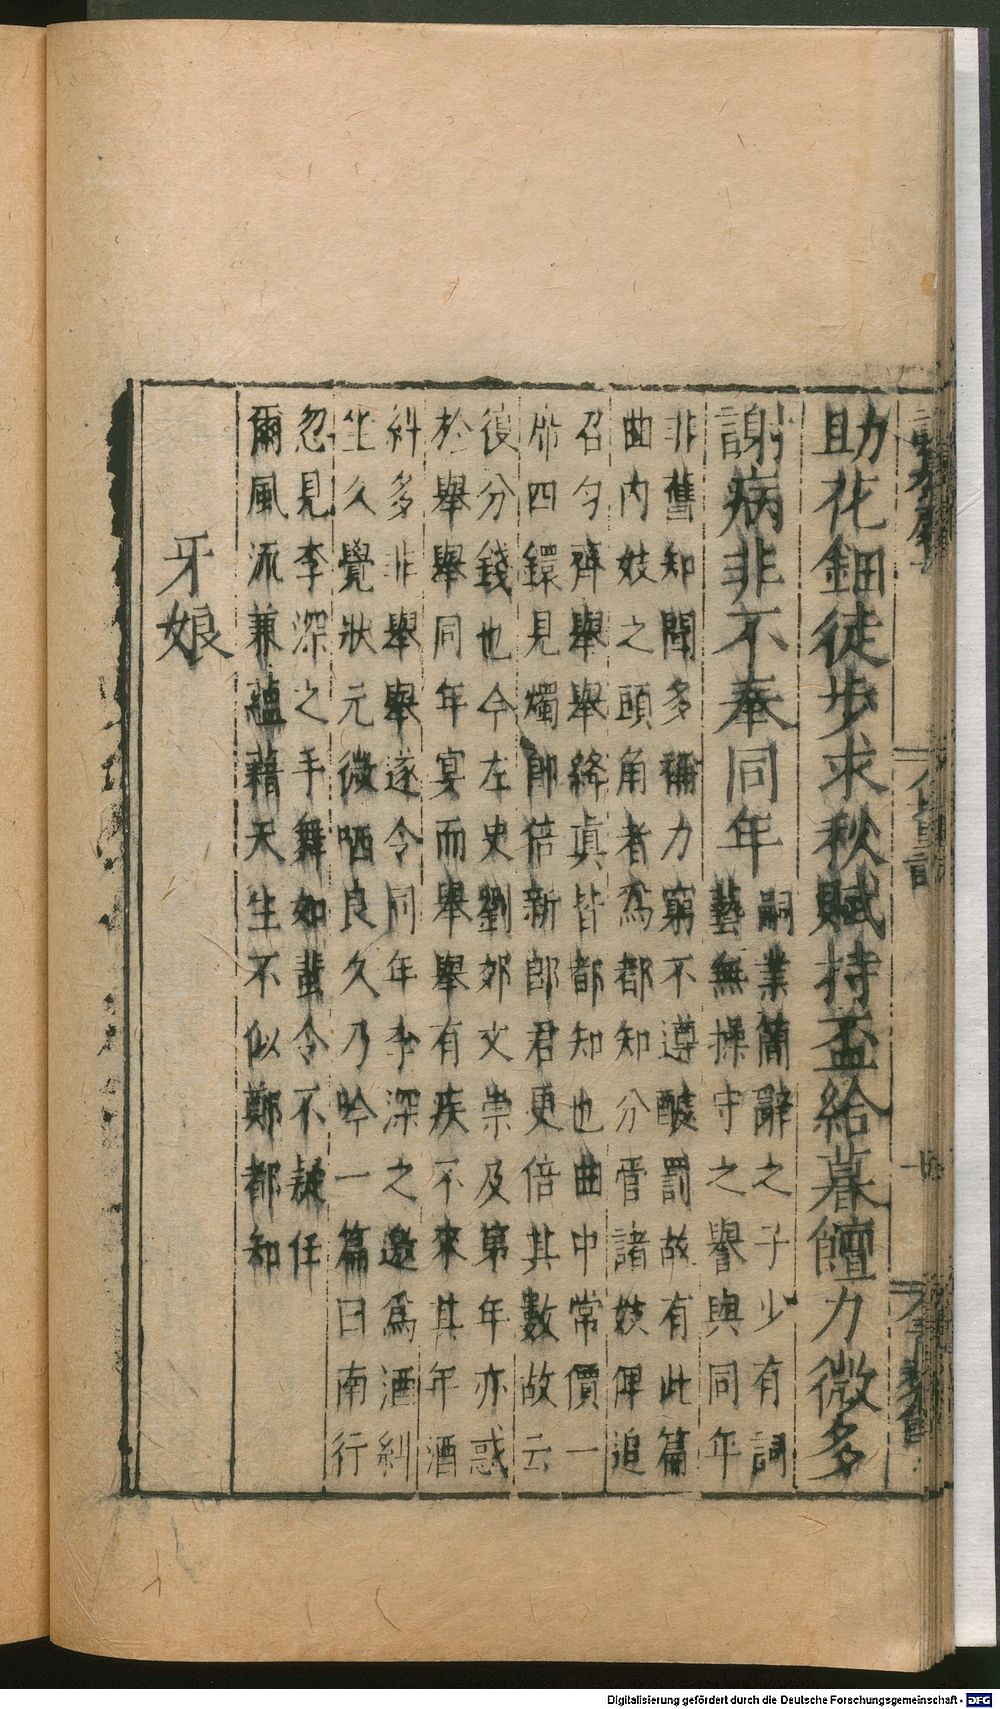 助花鈿徒步求秋賦持盃給暮饘力微多
謝病非不奉同年
嗣業簡辭之子少有詞
藝無操守之譽與同年
非舊知聞多稱力窮不遵醵罰故有此篇
曲内妓之頭角者爲都知分管諸妓俾追
召匀齊舉舉絳真皆都知也曲中常價一
席四鐶見燭卽倍新郎君更倍其數故云
復分錢也今左史劉郊文崇及第年亦惑
於舉舉同年宴而舉舉有疾不來其年酒
糾多非舉舉遂令同年李深之邀爲酒糾
坐久覺狀元微哂良久乃吟一篇曰南行
忽見李深之手舞如蜚令不疑任
爾風流兼蘊藉天生不似鄭都知
牙娘
Digitalisierung gefördert durch die Deutsche Forschungsgemeinschaft - DFG